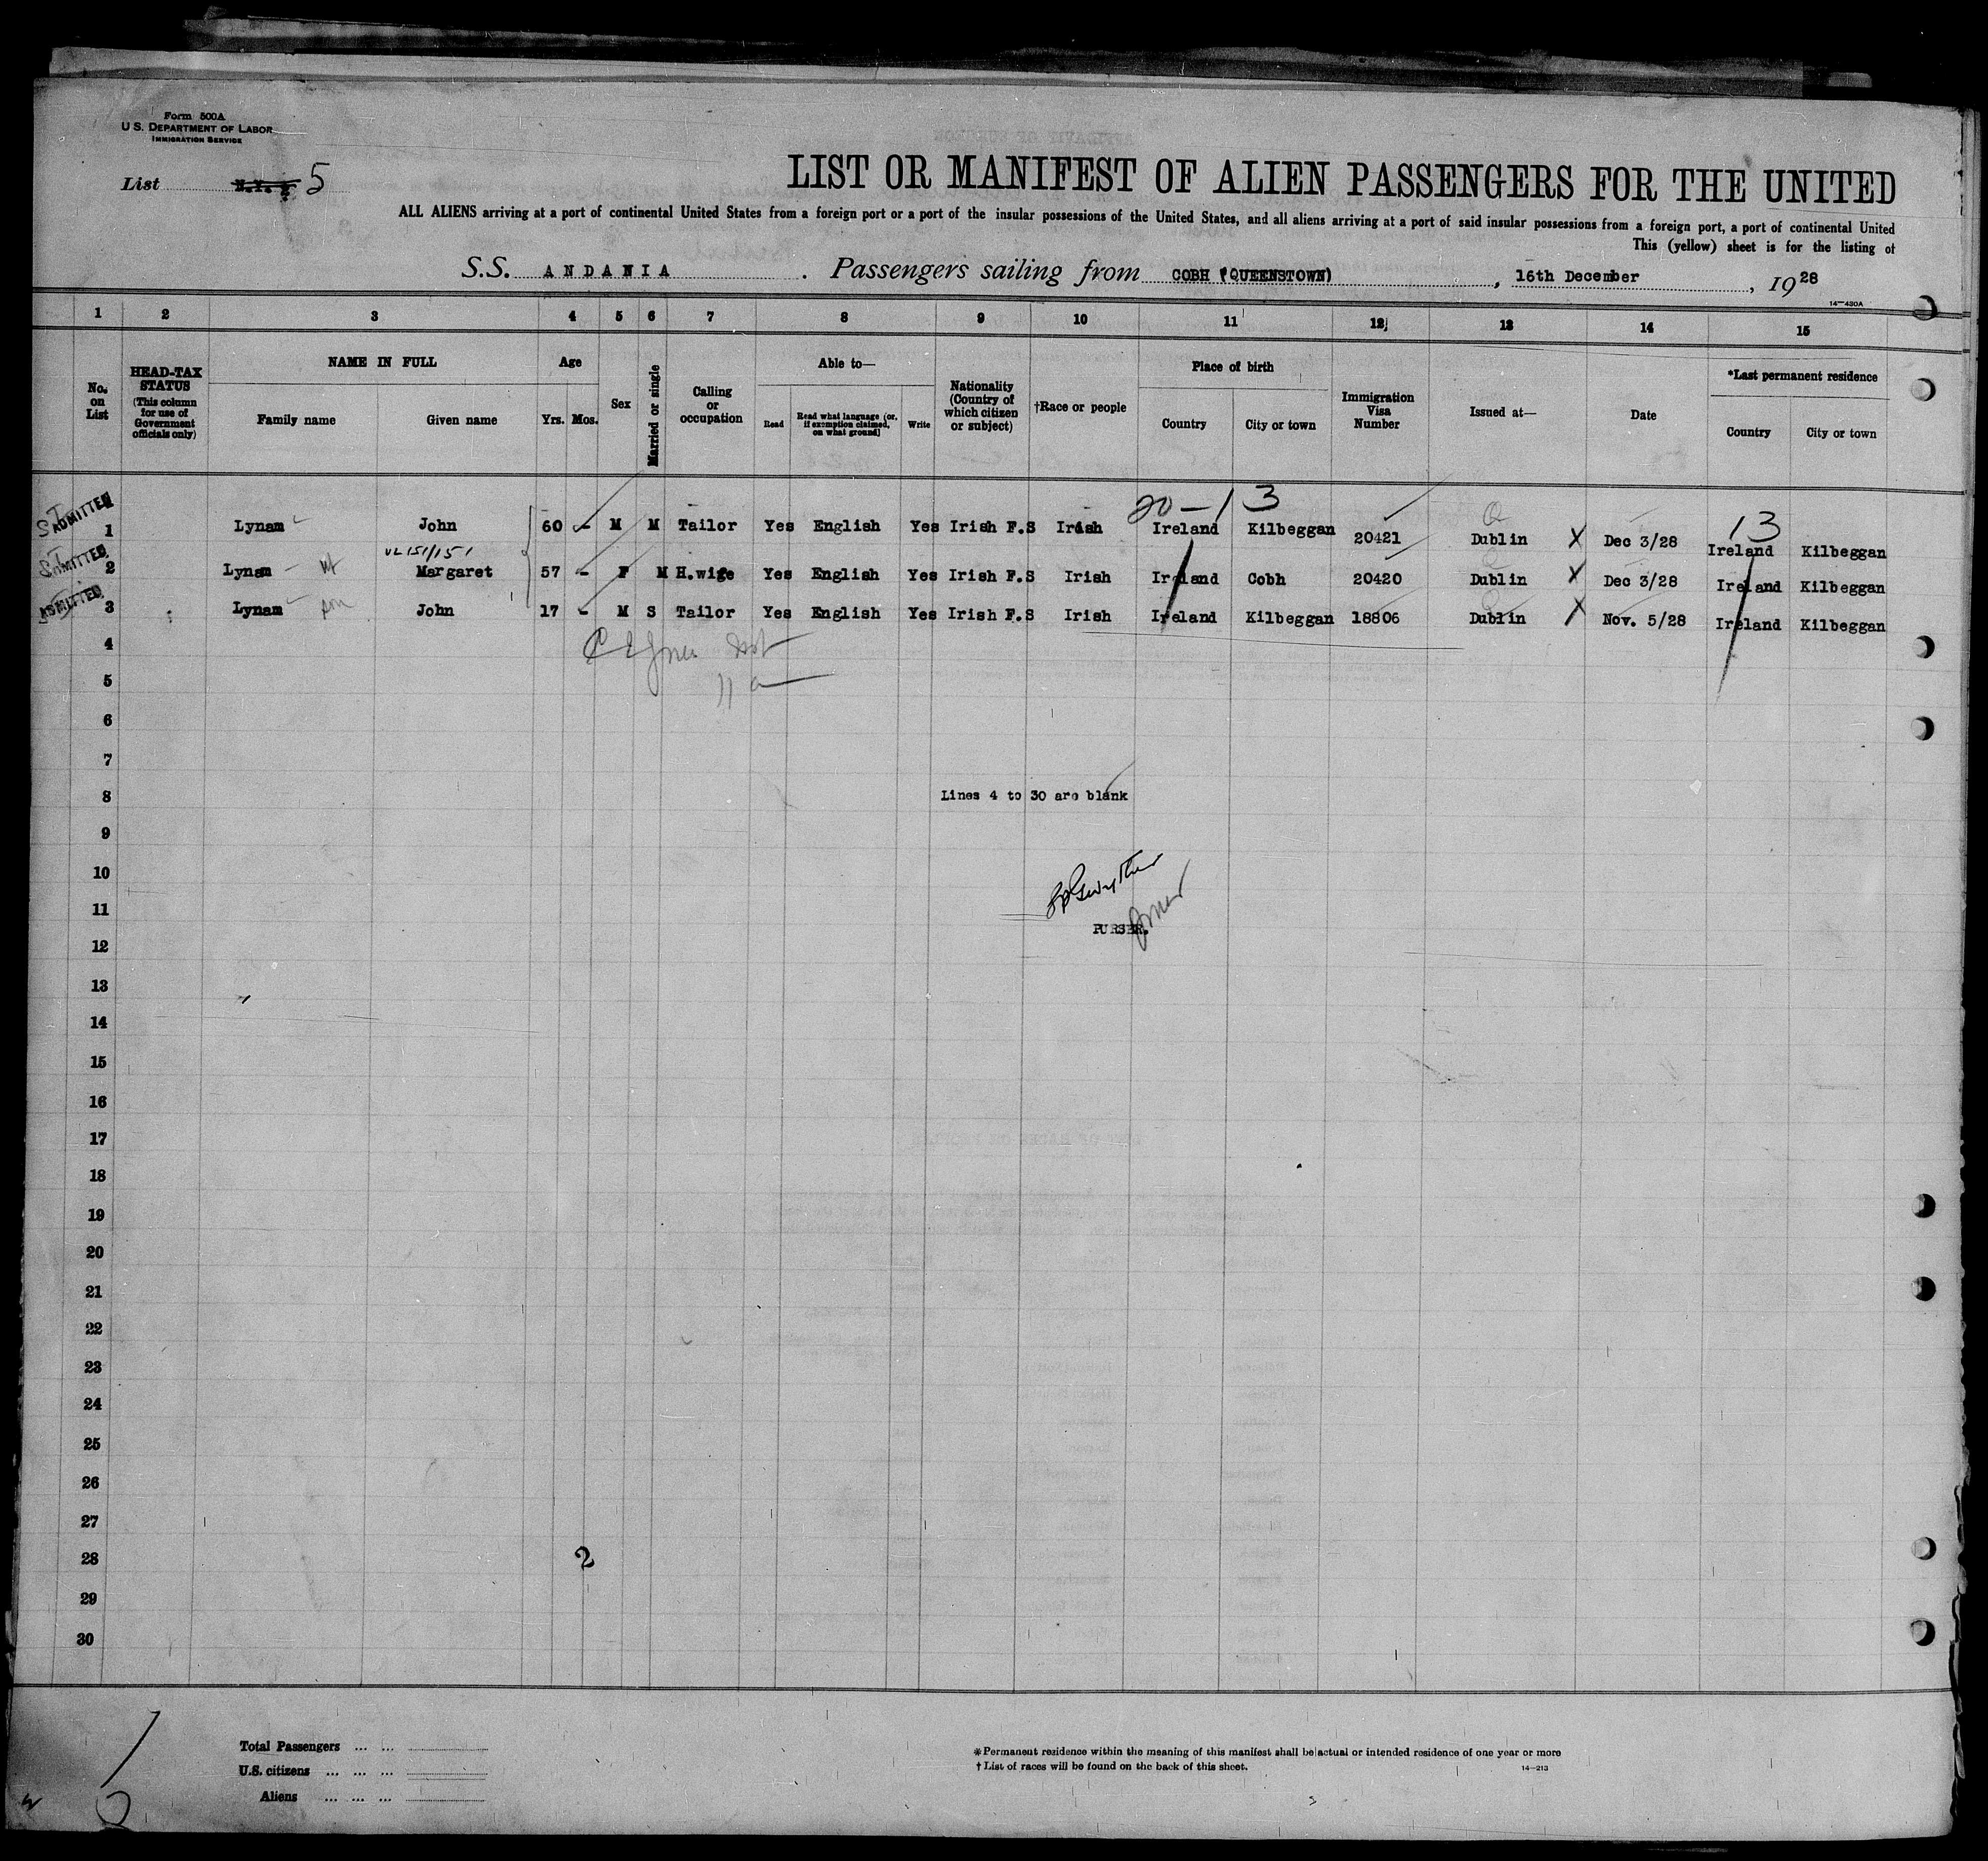 Form 500A
U.S. DEPARTMENT OF LABOR
IMMIGRATION SERVICE
List 5
LIST OR MANIFEST OF ALIEN PASSENGERS FOR THE UNITED
ALL ALIENS arriving at a port of continental United States from a foreign port or a port of the insular possessions of the United States, and all aliens arriving at a port of said insular possessions from a foreign port, a port of continental United
This (yellow) sheet is for the listing of
S.S. ANDANIA . Passengers sailing from COBH (QUEENSTOWN) , 16th December , 1928
14—430A
1 2 3 4 5 6 7 8 9 10 11 12 13 14 15
No. on List
HEAD-TAX STATUS (This column for use of Government officials only)
NAME IN FULL
Family name Given name
Age
Yrs. Mos.
Sex
Married or single
Calling or occupation
Able to—
Read Read what language (or, if exemption claimed, on what ground) Write
Nationality (Country of which citizen or subject)
†Race or people
Place of birth
Country City or town
Immigration Visa Number
Issued at—
Date
*Last permanent residence
Country City or town
20-13
13
ADMITTED
1 Lynam John 60 - M M Tailor Yes English Yes Irish F.S Irish Ireland Kilbeggan 20421 Dublin X Dec 3/28 Ireland Kilbeggan
VL151/151
ADMITTED
2 Lynam Margaret 57 - F M H.wife Yes English Yes Irish F.S Irish Ireland Cobh 20420 Dublin X Dec 3/28 Ireland Kilbeggan
ADMITTED
3 Lynam John 17 - M S Tailor Yes English Yes Irish F.S Irish Ireland Kilbeggan 18806 Dublin X Nov. 5/28 Ireland Kilbeggan
4
5
6
7
8 Lines 4 to 30 are blank
9
10
11
PURSER.
12
13
14
15
16
17
18
19
20
21
22
23
24
25
26
27
28 2
29
30
Total Passengers ... ...
U.S. citizens ... ... ...
Aliens ... ... ...
*Permanent residence within the meaning of this manifest shall be actual or intended residence of one year or more
†List of races will be found on the back of this sheet.
14—213